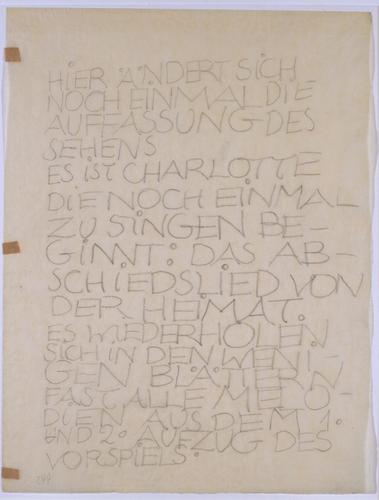 HIER ÄNDERT SICH
NOCH EINMAL DIE
AUFFASSUNG DES
SEHENS
ES IST CHARLOTTE
DIE NOCH EINMAL
ZU SINGEN BE-
GINNT: DAS AB-
SCHIEDSLIED VON
DER HEIMAT.
ES WIEDERHOLEN
SICH IN DEN WENI-
GEN BLÄTTERN
FAST ALLE MELO-
DIEN AUS DEM 1.
UND 2. AUFZUG DES
VORSPIELS.